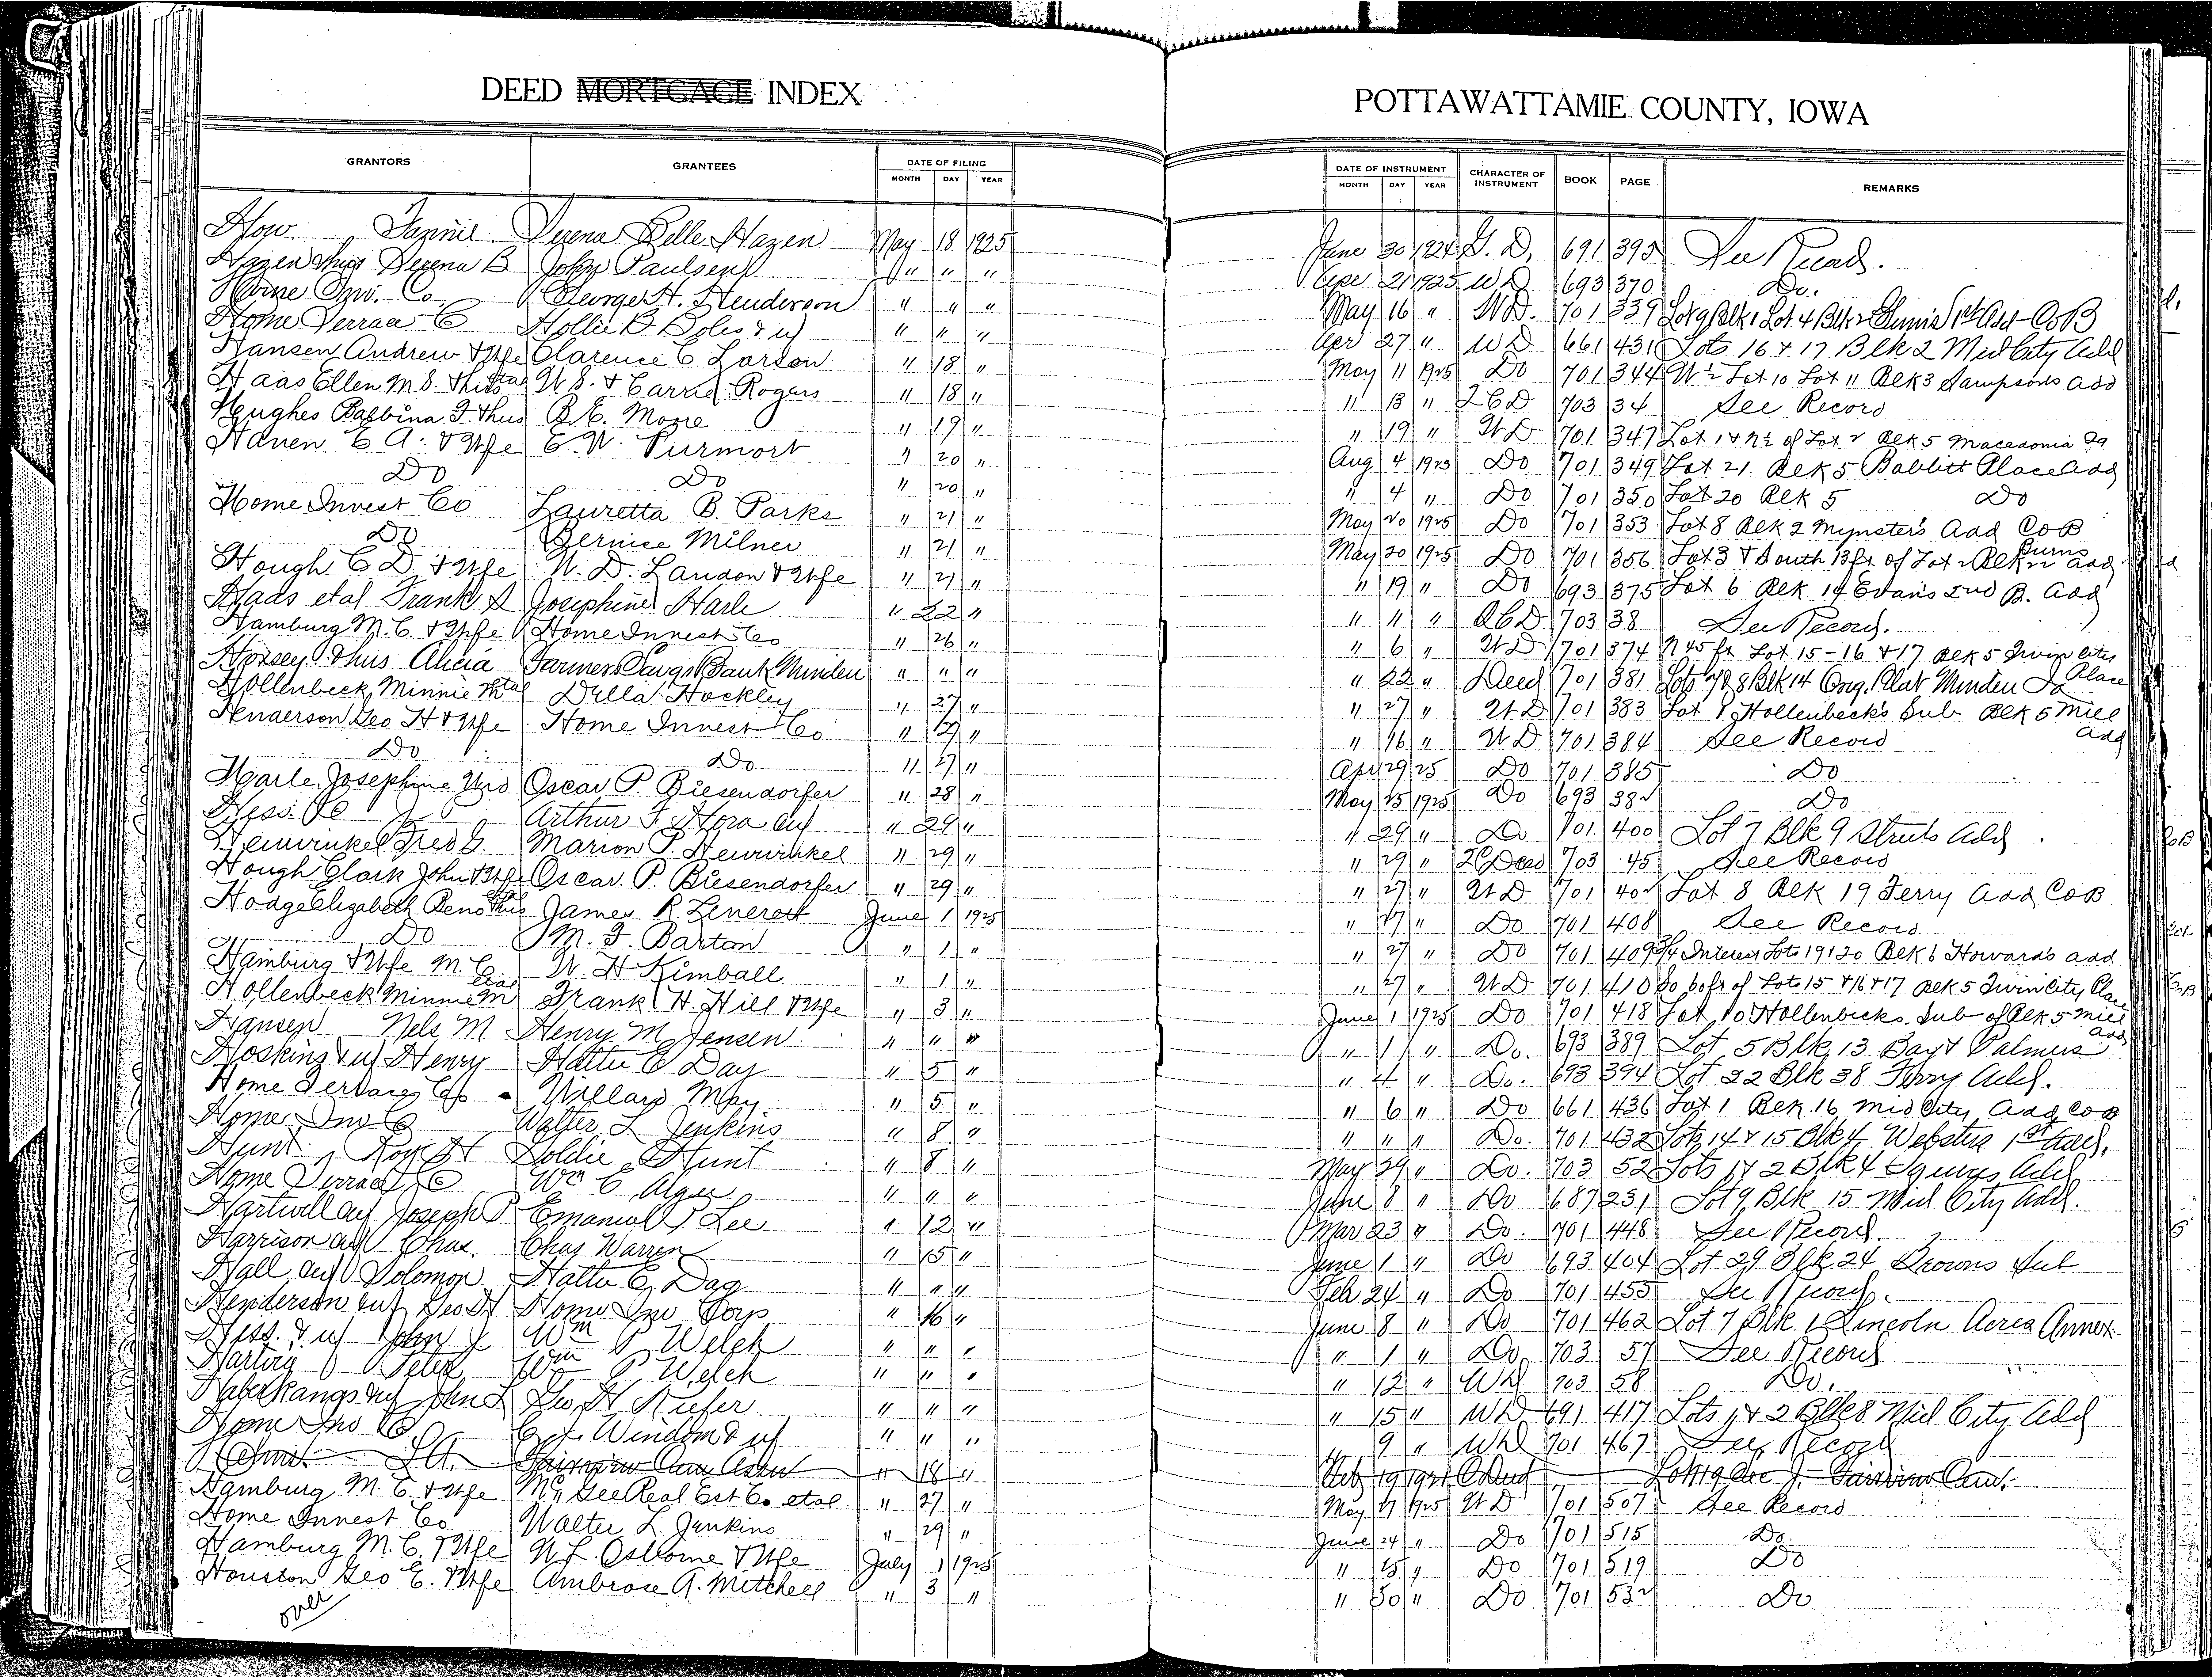 DEED MORTGAGE INDEX
POTTAWATTAMIE COUNTY, IOWA
GRANTORS GRANTEES DATE OF FILING MONTH DAY YEAR DATE OF INSTRUMENT MONTH DAY YEAR CHARACTER OF INSTRUMENT BOOK PAGE REMARKS
How Fannie Serena Belle Hazen May 18 1925 June 30 1924 G. D. 691 395 See Record.
Hazen & hus Serena B John Paulsen " " " Apr 21 1925 W D 693 370 Do.
Home Inv. Co. George H. Henderson " " " May 16 " W D. 701 339 Lot 9 Blk 1 Lot 4 Blk 2 1st Add - Co B
Home Terrace Co Hollie B. Boles & wf " " " Apr 27 " W D 661 431 Lots 16 & 17 Blk 2 Mid City Add
Hansen Andrew & Wife Clarence C. Larson " 18 " May 11 1925 Do 701 344 W ½ Lot 10 Lot 11 Blk 3 Sampsons Add
Haas Ellen M S. & hus etal W. S. & Carrie Rogers " 18 " " 13 " Q C D 703 34 See Record
Hughes Balbina F. & hus B. E. Moore " 19 " " 19 " W D 701 347 Lot 1 & N ½ of Lot 2 Blk 5 Macedonia Ia
Haven E A. & Wife E. W. Purmort " 20 " Aug 4 1923 Do 701 349 Lot 21 Blk 5 Babbitt Place Add
Do Do " 20 " " 4 " Do 701 350 Lot 20 Blk 5 Do
Home Invest Co Lauretta B. Parks " 21 " May 20 1925 Do 701 353 Lot 8 Blk 2 Mynster's Add Co B
Do Bernice Milner " 21 " May 20 1925 Do 701 356 Lot 3 & South 13 ft of Lot 2 Blk 22 Burns Add
Hough C. D. & Wife W. D. Landon & Wife " 21 " " 19 " Do 693 375 Lot 6 Blk 14 Evans 2nd B. Add
Haas etal Frank S Josephine Harle " 22 " " " " Q C D 703 38 See Record.
Hamburg M. C. & Wife Home Invest Co " 26 " " 6 " W D 701 374 N 45 ft Lot 15-16 & 17 Blk 5 Twin City Place
Horsey & hus Alicia Farmers Savgs Bank Minden " " " " 22 " Deed 701 381 Lots 7 & 8 Blk 14 Orig. Plat Minden Ia
Hollenbeck Minnie M etal Della Hockley " 27 " " 27 " W D 701 383 Lot 1 Hollenbeck's Sub Blk 5 Mill Add
Henderson Geo H & Wife Home Invest Co " 27 " " 16 " W D 701 384 See Record
Do Do " 27 " Apr 29 25 Do 701 385 Do
Harle, Josephine Wid Oscar P. Biesendorfer " 28 " May 25 1925 Do 693 382 Do
Hess Arthur F Hora & wf " 29 " " 29 " Do 701 400 Lot 7 Blk 9 Add
Heuwinkel Fred G. Marion P. Heuwinkel " 29 " " 29 " Q C Deed 703 45 See Record
Hough Clark John & Wife Oscar P. Biesendorfer " 29 " " 27 " W D 701 402 Lot 8 Blk 19 Ferry Add Co B
Hodge Elizabeth Reno & hus etal James R. June 1 1925 " 27 " Do 701 408 See Record
Do M. F. Barton " 1 " " 27 " Do 701 409 3/4 Interest Lots 19 & 20 Blk 6 Howard's Add
Hamburg & Wife M. C. W. H Kimball " 1 " " 27 " W D 701 410 So 60 ft of Lots 15 & 16 & 17 Blk 5 Twin City Place
Hollenbeck Minnie M etal Frank H. Hill & Wife " 3 " June 1 1925 Do 701 418 Lot 10 Hollenbecks Sub of Blk 5 Mill Add
Hansen Nels M Henry M. Jensen " " " " 1 " Do. 693 389 Lot 5 Blk 13 Bay & Palmers
Hosking & wf Henry Hattie E Day " 5 " " 4 " Do. 693 394 Lot 22 Blk 38 Ferry Add.
Home Terrace Co Willard May " 5 " " 6 " Do 661 436 Lot 1 Blk 16 Mid City Add Co B
Home Inv Co Walter L Jenkins " 8 " " " " Do. 701 432 Lots 14 & 15 Blk 4 Websters 1st Add.
Hunt Roy H Goldie Hunt " 8 " May 29 " Do. 703 52 Lots 1 & 2 Blk 4 Squires Add
Home Terrace Co Wm C. Alger " " " June 8 " Do 687 231 Lot 9 Blk 15 Mid City Add.
Hartwell & wf Joseph P Emanuel P Lee " 12 " Mar 23 " Do. 701 448 See Record.
Harrison & wf Chas. Chas Warren " 15 " June 1 " Do 693 404 Lot 29 Blk 24 Browns Sub
Hall & wf Solomon Hattie E. Day " " " Feb 24 " Do 701 455 See Record.
Henderson & wf Geo H Home Inv Corp " 16 " June 8 " Do 701 462 Lot 7 Blk 1 Lincoln Acres Annex
Hess & wf John J Wm P Welch " " " " 1 " Do 703 57 See Record
Harting Peter Wm P Welch " " " " 12 " W D 703 58 Do.
& wf John L Geo H Kiefer " " " " 15 " W D 691 417 Lots 1 & 2 Blk 8 Mid City Add
Home Inv Co Windom & wf " " " " 9 " W D 701 467 See Record
Fairview Cem Assn " 18 " Feb 19 1921 Deed Fairview Cem.
Hamburg M. C. & Wife McGee Real Est Co. etal " 27 " May 17 1925 W D 701 507 See Record
Home Invest Co Walter L. Jenkins " 29 " June 24 " Do 701 515 Do
Hamburg M. C. & Wife W. L. Osborne & Wife July 1 1925 " 15 " Do 701 519 Do
Houston Geo E. & Wife Ambrose A. Mitchell " 3 " " 30 " Do 701 532 Do
over